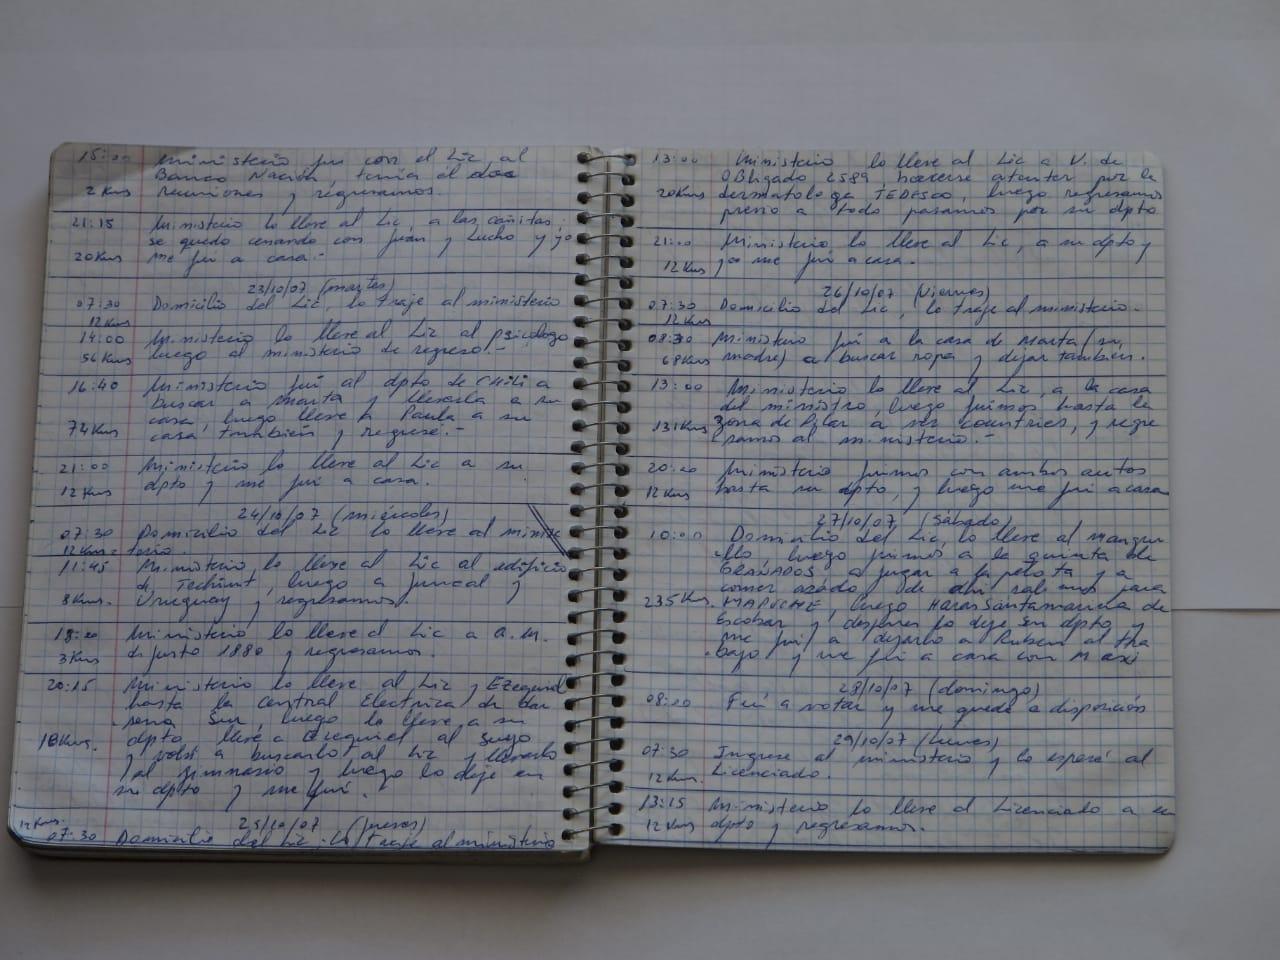 15:00 Ministerio fui con el Lic al
Banco Nación tenía él dos
2 Kms reuniones y regresamos.
21:15 Ministerio lo lleve al Lic, a las cañitas,
se quedo cenando con Juan y Lucho y yo
20 Kms me fui a casa.-
23/10/07 (martes)
07:30 Domicilio del Lic, lo traje al ministerio
12 Kms
14:00 Ministerio lo lleve al Lic al psicólogo
56 Kms luego al ministerio de regreso.-
16:40 Ministerio fui al dpto de CHILI a
buscar a marta y llevarla a su
casa, luego lleve a Paula a su
74 Kms casa también y regresé.-
21:00 Ministerio lo lleve al Lic a su
12 Kms dpto y me fui a casa.
24/10/07 (miércoles)
07:30 Domicilio del Lic lo lleve al minis
12 Kms = terio.
11:45 Ministerio lo lleve al Lic al edificio
de Techint, luego a Juncal y
8 Kms. Uruguay y regresamos.
18:20 Ministerio lo lleve al Lic a A. M.
de Justo 1880 y regresamos.
3 Kms
20:15 Ministerio lo lleve al Lic y Ezequiel
hasta la central Electrica de Dar
sena Sur, luego lo lleve a su
18 Kms. dpto lleve a Ezequiel al suyo
y volví a buscarlo al Lic y llevarlo
al gimnasio y luego lo deje en
su dpto y me fui.
12 Kms. 25/10/07 (jueves)
07:30 Domicilio del Lic. lo traje al ministerio
13:00 Ministerio lo lleve al Lic a V. de
Obligado 2589 hacerse atender por la
20 Kms dermatologa TEDESCO, luego regresamos
previo a todo pasamos por su dpto
21:00 Ministerio lo lleve al Lic, a su dpto y
12 Kms yo me fui a casa.
26/10/07 (Viernes)
07:30 Domicilio del Lic, lo traje al ministerio.
12 Kms
08:30 Ministerio fui a la casa de Marta (su
68 Kms madre) a buscar ropa y dejar también.
13:00 Ministerio lo lleve al Lic, a la casa
del ministro, luego fuimos hasta la
131 Kms zona de Pilar a ver countries, y regre
samos al ministerio.-
20:20 Ministerio fuimos con ambos autos
12 Kms hasta su dpto, y luego me fui a casa
27/10/07 (Sábado)
10:00 Domicilio del Lic, lo lleve al mangru
llo luego fuimos a la quinta de
GRANADOS a jugar a la pelota y a
comer asado, de ahí salimos para
235 Ks. MAPUCHE, luego Haras Santa maria de
Escobar y despues lo deje en dpto y
me fui a dejarlo a Ruben al tra
bajo y me fui a casa con Maxi
28/10/07 (domingo)
08:20 Fui a votar y me quede a disposición
29/10/07 (Lunes)
07:30 Ingrese al ministerio y lo esperé al
12 Kms. Licenciado.
13:15 Ministerio lo lleve al Licenciado a
12 Kms dpto y regresamos.